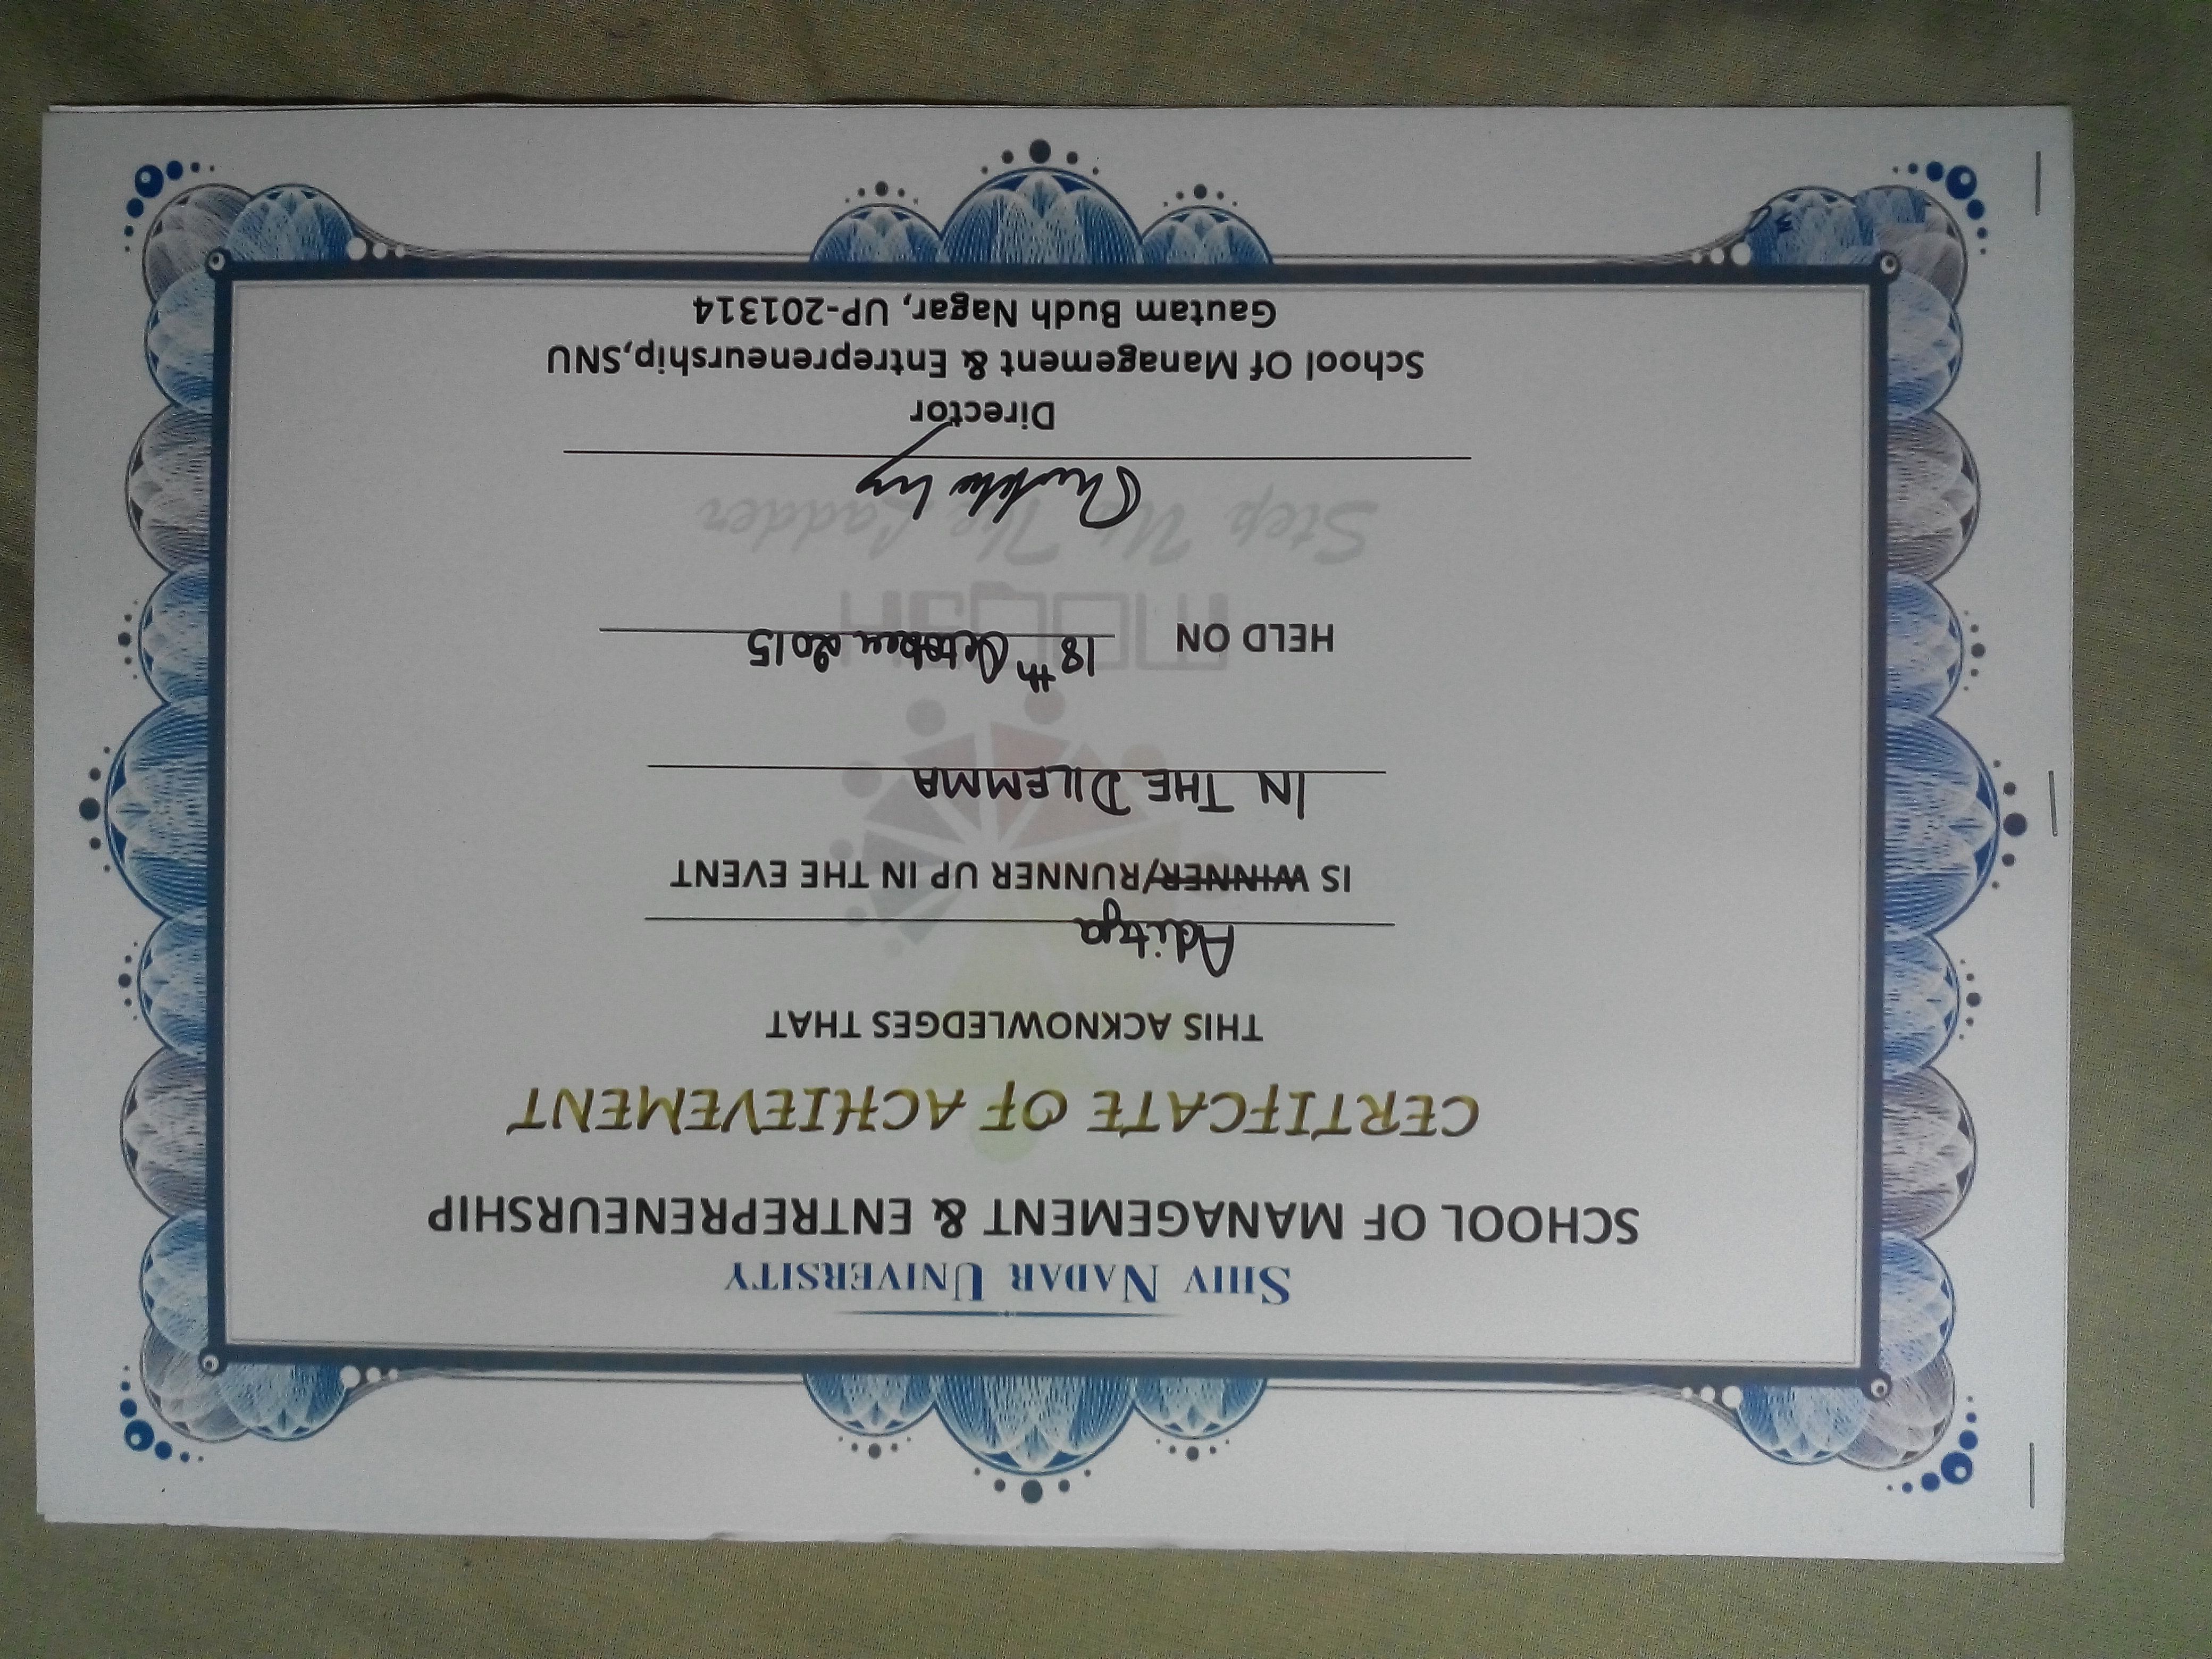 SHIV NADAR UNIVERSITY
SCHOOL OF MANAGEMENT & ENTREPRENEURSHIP
CERTIFCATE OF ACHIEVEMENT
THIS ACKNOWLEDGES THAT
Aditya
IS WINNER/RUNNER UP IN THE EVENT
IN THE DILEMMA
HELD ON 18th October 2015
Step Up The Ladder
Director
School Of Management & Entrepreneurship,SNU
Gautam Budh Nagar, UP-201314